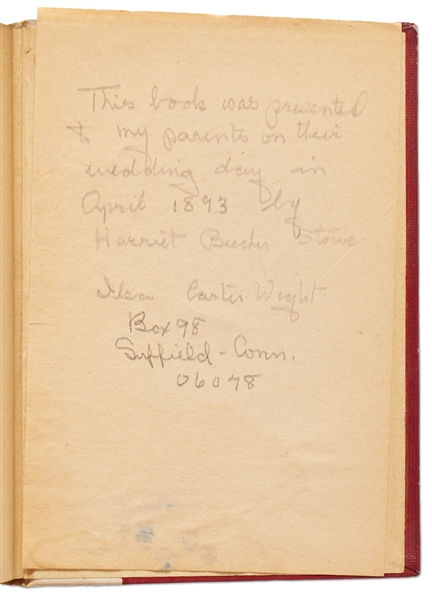 This book was presented
to my parents on their
wedding day in
April 1893 by
Harriet Beecher Stowe.
Ilsa Carter Wight
Box 98
Suffield - Conn.
06078